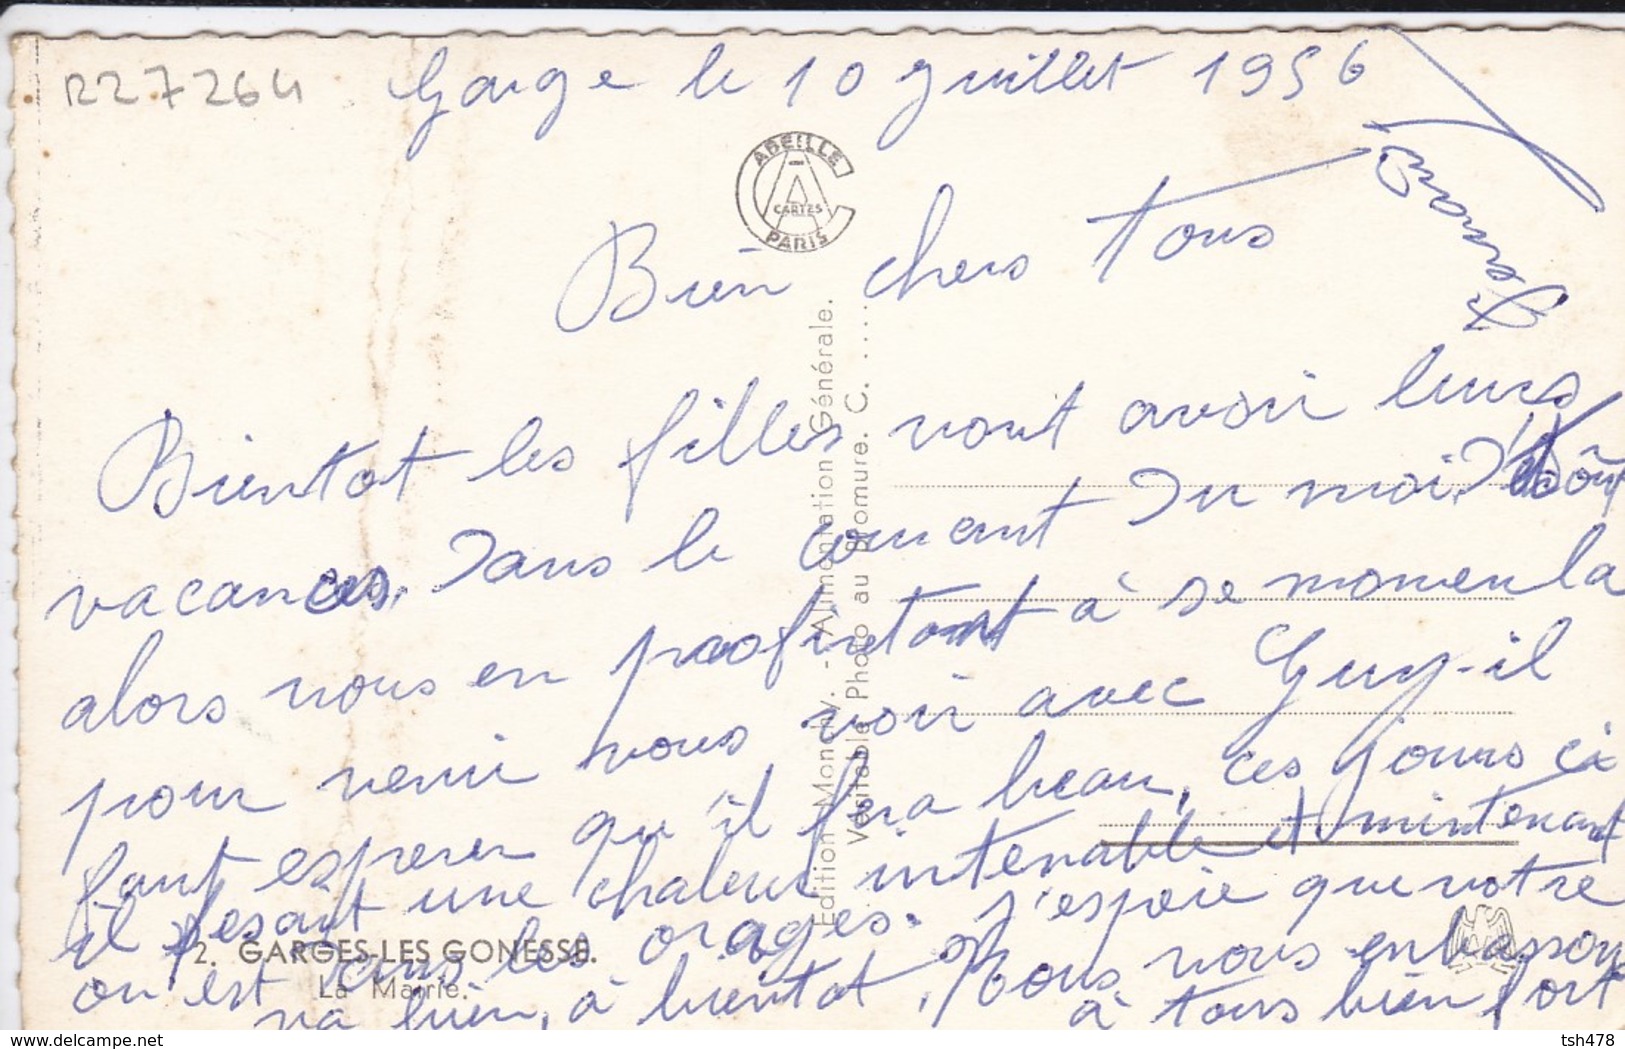 R27264
Garge le 10 Juillet 1956
ABEILLE
CARTES
PARIS
Bien chers tous
Bientot les filles vont avoir leurs
vacances, dans le courant du moi d'Aôut
alors nous en profiretont à se momen la
pour venir vous voir avec Guy-il
faut esperer qu'il fera beau, ces jours ci
il fesait une chaleur intenable et mintenant
on est dans les orages. J'espeie que votre
va bien, à bientot, nous vous enbrasson
à tous bien fort
Edition Monchy. - Alimentation Générale.
Véritable Photo au Bromure. C. ....
2. GARGES-LES GONESSE.
La Mairie.
delcampe.net
tsh478